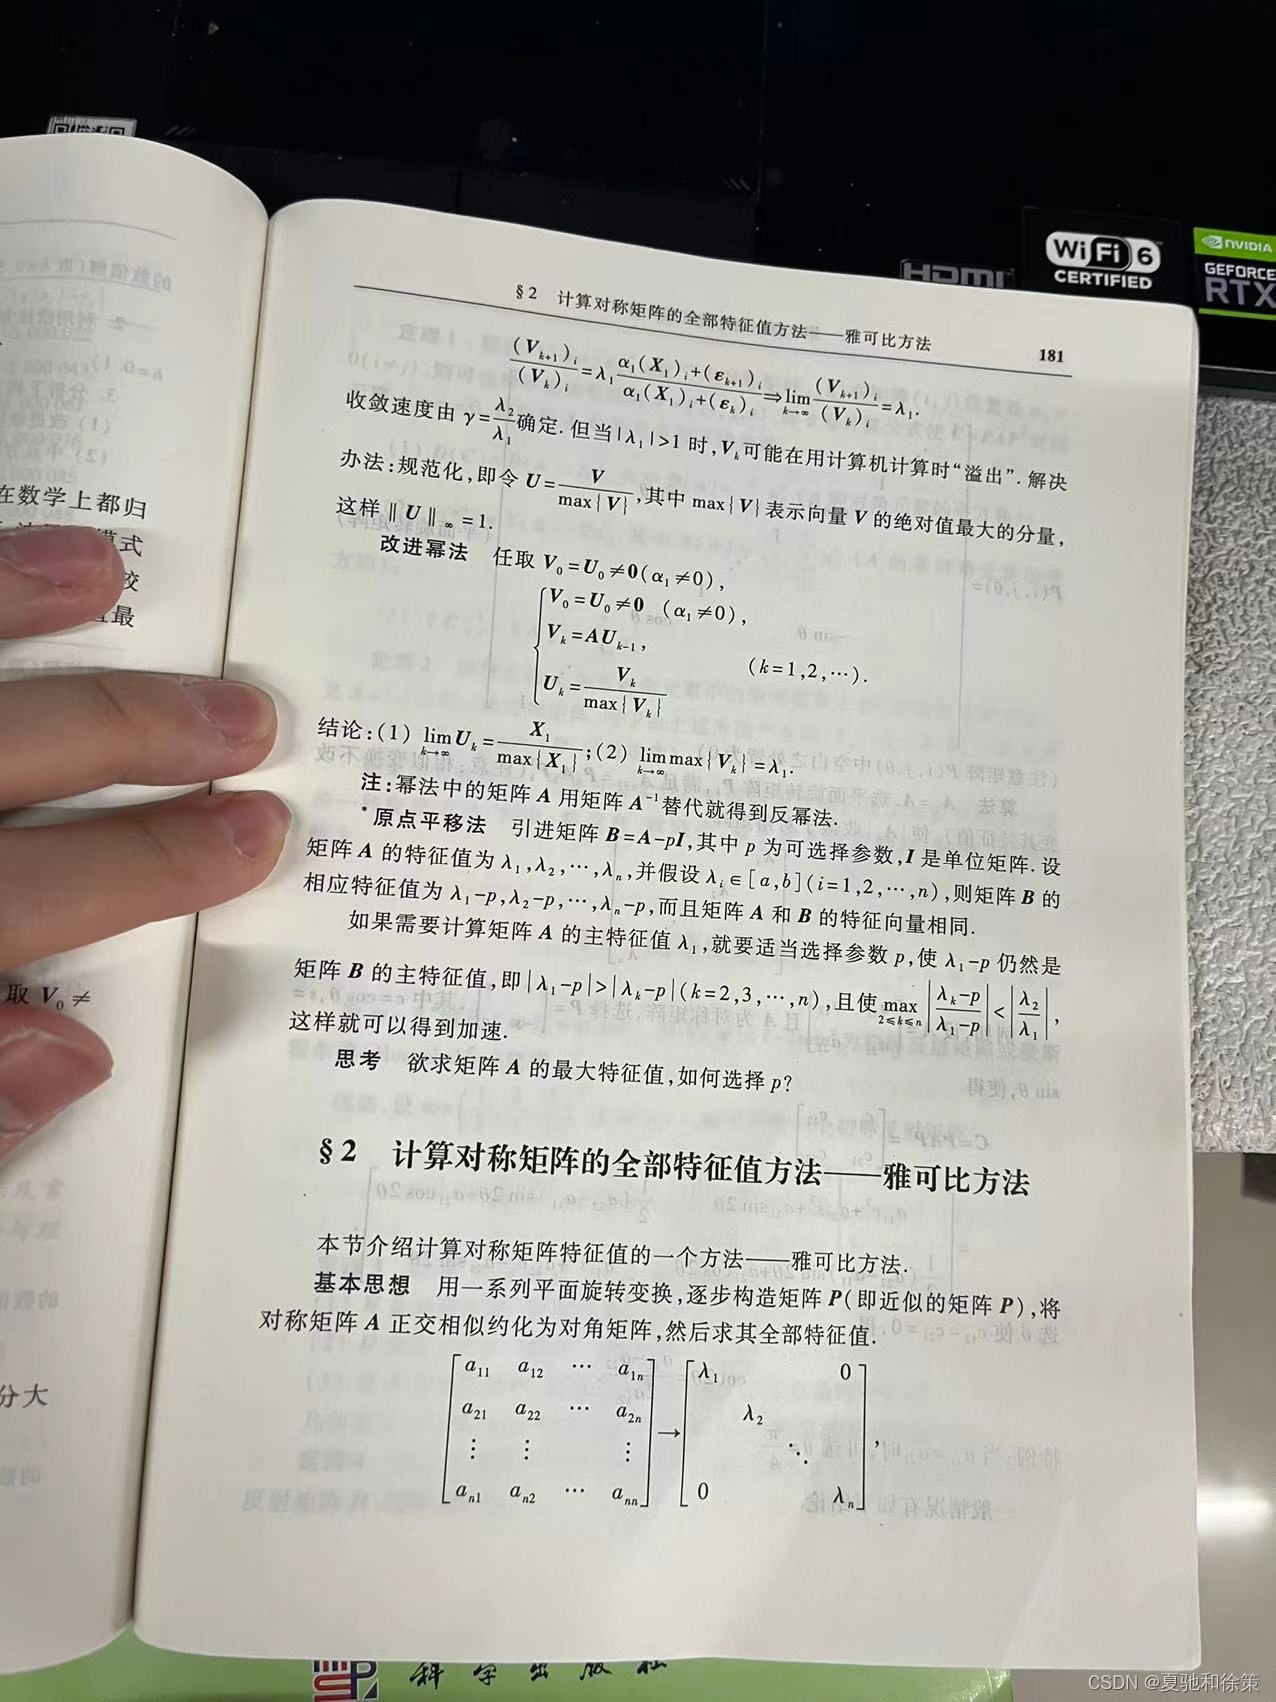 WiFi 6
CERTIFIED
HDMI
NVIDIA
GEFORCE
RTX
在数学上都归
模式
最
取 V₀≠
分大
§2 计算对称矩阵的全部特征值方法——雅可比方法 181
(V_{k+1})_i/(V_k)_i=λ₁ (α₁(X₁)_i+(ε_{k+1})_i)/(α₁(X₁)_i+(ε_k)_i)⇒lim_{k→∞} (V_{k+1})_i/(V_k)_i=λ₁.
收敛速度由 γ=λ₂/λ₁确定.但当|λ₁|>1 时,V_k可能在用计算机计算时“溢出”.解决
办法:规范化,即令 U=V/max{V},其中 max{V}表示向量 V 的绝对值最大的分量,
这样‖U‖_∞=1.
改进幂法 任取 V₀=U₀≠0(α₁≠0),
V₀=U₀≠0 (α₁≠0),
V_k=AU_{k-1},
(k=1,2,⋯).
U_k=V_k/max{V_k}
结论:(1) lim_{k→∞}U_k=X₁/max{X₁};(2) lim_{k→∞}max{V_k}=λ₁.
注:幂法中的矩阵 A 用矩阵 A⁻¹替代就得到反幂法.
*原点平移法 引进矩阵 B=A-pI,其中 p 为可选择参数,I 是单位矩阵.设
矩阵 A 的特征值为 λ₁,λ₂,⋯,λ_n,并假设 λ_i∈[a,b](i=1,2,⋯,n),则矩阵 B 的
相应特征值为 λ₁-p,λ₂-p,⋯,λ_n-p,而且矩阵 A 和 B 的特征向量相同.
如果需要计算矩阵 A 的主特征值 λ₁,就要适当选择参数 p,使 λ₁-p 仍然是
矩阵 B 的主特征值,即|λ₁-p|>|λ_k-p|(k=2,3,⋯,n),且使max_{2≤k≤n}|(λ_k-p)/(λ₁-p)|<|λ₂/λ₁|,
这样就可以得到加速.
思考 欲求矩阵 A 的最大特征值,如何选择 p?
§2 计算对称矩阵的全部特征值方法——雅可比方法
本节介绍计算对称矩阵特征值的一个方法——雅可比方法.
基本思想 用一系列平面旋转变换,逐步构造矩阵 P(即近似的矩阵 P),将
对称矩阵 A 正交相似约化为对角矩阵,然后求其全部特征值.
a₁₁ a₁₂ ⋯ a₁ₙ λ₁ 0
a₂₁ a₂₂ ⋯ a₂ₙ λ₂
⋮ ⋮ ⋮ → ⋱ ,
aₙ₁ aₙ₂ ⋯ aₙₙ 0 λₙ
科学出版社
CSDN @夏驰和徐策